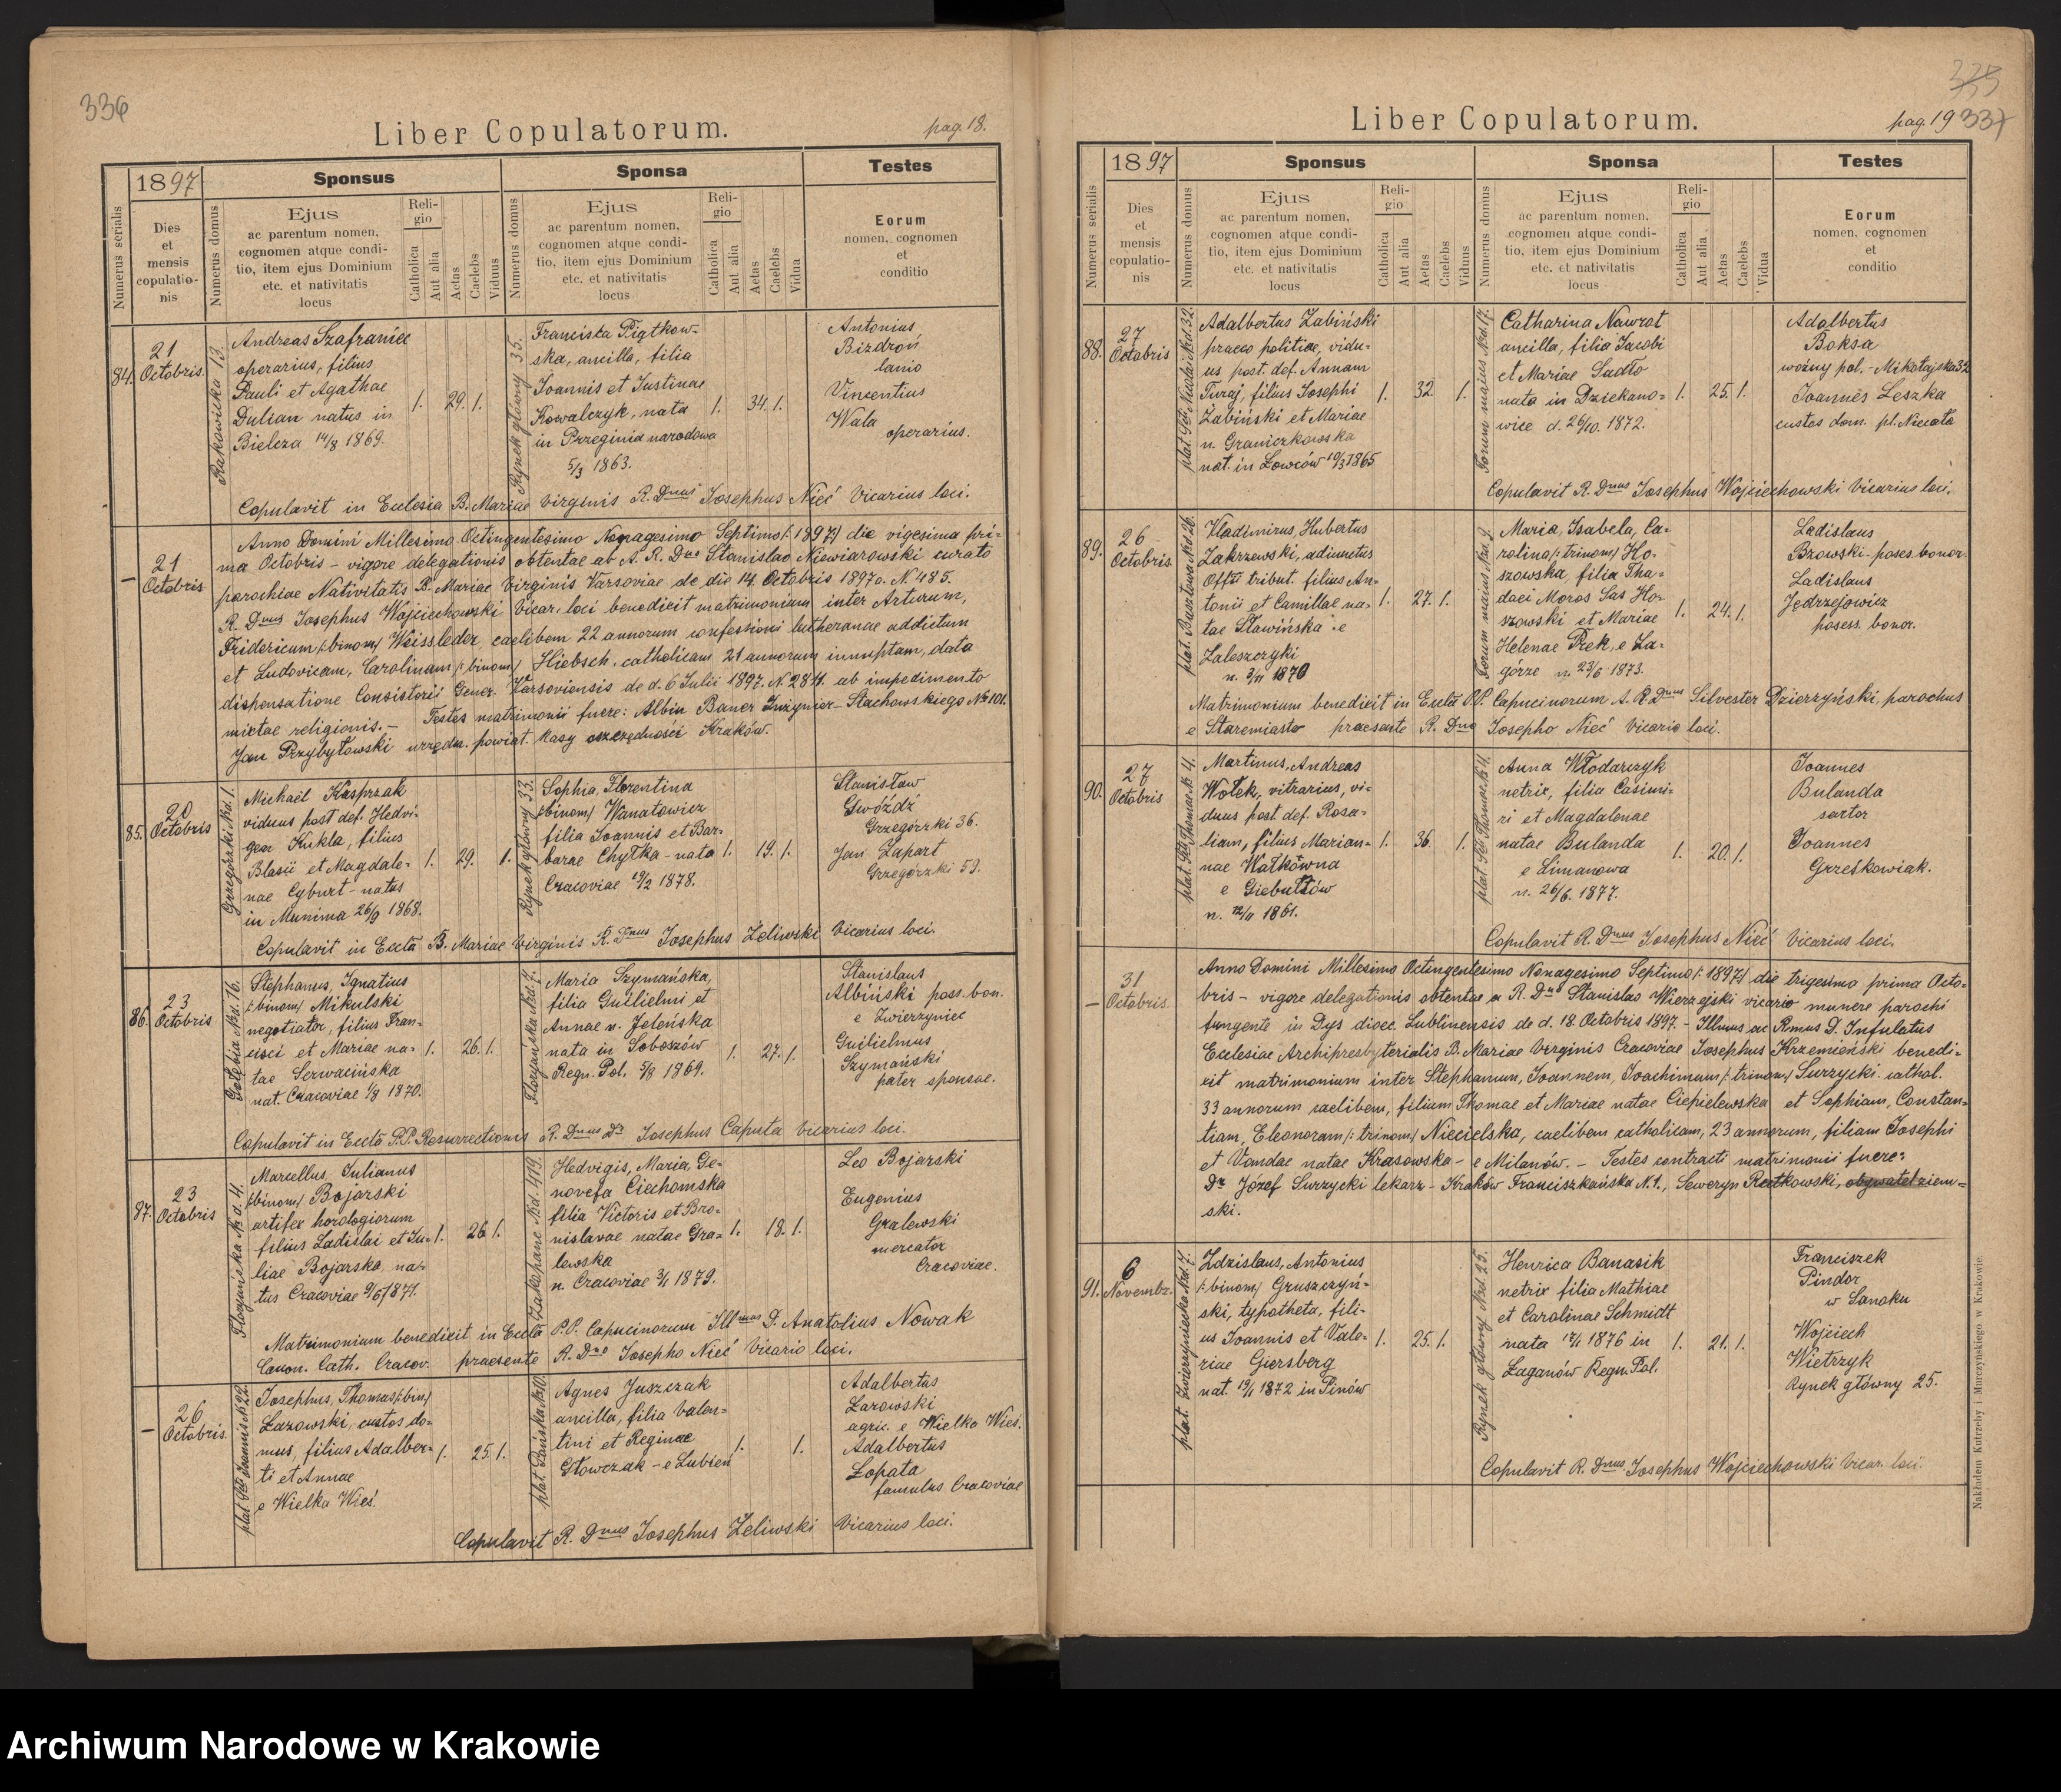 336
Liber Copulatorum.
pag. 18.
1897
Sponsus
Sponsa
Testes
Numerus serialis
Dies
et
mensis
copulatio-
nis
Numerus domus
Ejus
ac parentum nomen,
cognomen atque condi-
tio, item ejus Dominium
etc. et nativitatis
locus
Reli-
gio
Catholica
Aut alia
Aetas
Caelebs
Viduus
Numerus domus
Ejus
ac parentum nomen,
cognomen atque condi-
tio, item ejus Dominium
etc. et nativitatis
locus
Reli-
gio
Catholica
Aut alia
Aetas
Caelebs
Vidua
Eorum
nomen, cognomen
et
conditio
84.
21
Octobris.
Rakowicka 13.
Andreas Szafraniec
operarius, filius
Pauli et Agathae
Dulian natus in
Bielcza 14/8 1869.
1. 29. 1.
Rynek główny 35.
Francisca Piątkow-
ska, ancilla, filia
Joannis et Justinae
Kowalczyk, nata
in Przeginia narodowa
5/3 1863.
1. 34. 1.
Antonius
Bizdroń
lanio
Vincentius
Wala
operarius.
Copulavit in Ecclesia B. Mariae Virginis R. Dnus Josephus Nieć Vicarius loci.
–
21
Octobris
Anno Domini Millesimo Octingentesimo Nonagesimo Septimo /:1897:/ die vigesima pri-
ma Octobris – vigore delegationis obtentae ab A. R. Dno Stanislao Niewiarowski curato
parochiae Nativitatis B. Mariae Virginis Varsoviae de die 14. Octobris 1897 a. N. 485.
R. Dnus Josephus Wojciechowski Vicar. loci benedixit matrimonium inter Arturum,
Fridericum /:binom:/ Weissleder, caelibem 22 annorum confessioni lutheranae addictum
et Ludovicam, Carolinam /:binom:/ Hiebsch, catholicam 21 annorum innuptam, data
dispensatione Consistorii Gener. Varsoviensis de d. 6 Julii 1897. N. 2811. ab impedimento
mixtae religionis. – Testes matrimonii fuere: Albin Bauer Inżynier – Stachowskiego No 101.
Jan Przybyłowski urzędn. powiat. Kasy oszczędności Kraków.
85.
20
Octobris
Grzegórzki Nd. 1.
Michaël Kasprzak
viduus post def. Hedvi-
gem Kukla, filius
Blasii et Magdale-
nae Cyburt – natus
in Munina 26/9 1868.
1. 29. 1.
Rynek główny 33.
Sophia, Florentina
/:binom:/ Wanatowicz
filia Joannis et Bar-
barae Chytka – nata
Cracoviae 19/2 1878.
1. 19. 1.
Stanisław
Gwóźdź
Grzegórzki 36.
Jan Łapart
Grzegórzki 59.
Copulavit in Eccla B. Mariae Virginis R. Dnus Josephus Zeliwski Vicarius loci.
86.
23
Octobris
Gołębia Nd. 16.
Stephanus, Ignatius
/:binom:/ Mikulski
negotiator, filius Fran-
cisci et Mariae na-
tae Serwacińska
nat. Cracoviae 1/8 1870.
1. 26. 1.
Floryańska Nd. 7.
Maria Szymańska,
filia Guilielmi et
Annae n. Jeleńska
nata in Soboszów
Regn. Pol. 5/8 1869.
1. 27. 1.
Stanislaus
Albiński poss. bon.
e Zwierzyniec
Guilielmus
Szymański
pater sponsae.
Copulavit in Eccla P.P. Resurrectionis R. Dnus Dr Josephus Caputa Vicarius loci.
87.
23
Octobris
Floryańska Nd. 41.
Marcellus, Julianus
/:binom:/ Bojarski
artifex horologiorum
filius Ladislai et Ju-
liae Bojarska na-
tus Cracoviae 9/6 1871.
1. 26 1.
Zakopane Nd. 419.
Hedvigis, Maria, Ge-
novefa Ciechomska
filia Victoris et Bro-
nislavae natae Gra-
lewska
n. Cracoviae 3/1 1879.
1. 18. 1.
Leo Bojarski
Eugenius
Gralewski
mercator
Cracoviae.
Matrimonium benedixit in Eccla P.P. Capucinorum Illmus D. Anatolius Nowak
Canon. Cath. Cracov. praesente R. Dno Josepho Nieć Vicario loci.
–
26
Octobris
plat. Sti Joannis N 22.
Josephus, Thomas /:bin:/
Łazowski, custos do-
mus, filius Adalber-
ti et Annae
e Wielka Wieś.
1. 25. 1.
plat. Pańska No 10.
Agnes Juszczak
ancilla, filia Valen-
tini et Reginae
Głowczak – e Lubień
1. 1.
Adalbertus
Łazowski
agric. e Wielka Wieś.
Adalbertus
Łopata
famulus Cracoviae
Copulavit R. Dnus Josephus Zeliwski Vicarius loci.
335
Liber Copulatorum.
pag. 19 337
1897
Sponsus
Sponsa
Testes
Numerus serialis
Dies
et
mensis
copulatio-
nis
Numerus domus
Ejus
ac parentum nomen,
cognomen atque condi-
tio, item ejus Dominium
etc. et nativitatis
locus
Reli-
gio
Catholica
Aut alia
Aetas
Caelebs
Viduus
Numerus domus
Ejus
ac parentum nomen,
cognomen atque condi-
tio, item ejus Dominium
etc. et nativitatis
locus
Reli-
gio
Catholica
Aut alia
Aetas
Caelebs
Vidua
Eorum
nomen, cognomen
et
conditio
88.
27
Octobris
plat. Sti Nicolai Nd. 32.
Adalbertus Żabiński
praeco politiae, vidu-
us post. def. Annam
Turaj, filius Josephi
Żabiński et Mariae
n. Graniczkowska
nat. in Łowców 10/3 1865
1. 32. 1.
Forum maius Nd. 17.
Catharina Nawrot
ancilla, filia Jacobi
et Mariae Sadło
nata in Dziekano-
wice d. 26/10. 1872.
1. 25. 1.
Adalbertus
Boksa
woźny pol. – Mikołajska 32
Joannes Leszka
custos dom. pl. Niecała
Copulavit R. Dnus Josephus Wojciechowski Vicarius loci.
89.
26
Octobris
plat. Basztowa Nd. 26.
Vladimirus, Hubertus
Zakrzewski, adiunctus
Offii tribut. filius An-
tonii et Camillae na-
tae Sławińska e
Zaleszczyki
n. 3/11 1870
1. 27. 1.
Forum maius Nd. 9.
Maria, Isabela, Ca-
rolina /:trinom:/ Ho-
szowska, filia Tha-
daei Moros Sas Ho-
szowski et Mariae
Helenae Prek, e Za-
górze n. 23/6 1873.
1. 24. 1.
Ladislaus
Bzowski – poses. bonor.
Ladislaus
Jędrzejowicz
posess. bonor.
Matrimonium benedixit in Eccla P.P. Capucinorum A. R. Dnus Silvester Dzierzyński, parochus
e Staremiasto praesente R. Dno Josepho Nieć Vicario loci.
90.
27
Octobris
plat. Sti Thomae N 4.
Martinus, Andreas
Wołek, vitrarius, vi-
duus post. def. Rosa-
liam, filius Marian-
nae Wałkówna
e Giebułtów
n. 12/11 1861.
1. 36. 1.
plat. Sti Thomae N 4.
Anna Włodarczyk
netrix, filia Casimi-
ri et Magdalenae
natae Bulanda
e Limanowa
n. 26/6. 1877.
1. 20. 1.
Joannes
Bulanda
sartor
Joannes
Grześkowiak.
Copulavit R. Dnus Josephus Nieć Vicarius loci.
–
31
Octobris.
Anno Domini Millesimo Octingentesimo Nonagesimo Septimo /:1897:/ die trigesima prima Octo-
bris – vigore delegationis obtentae a R. Dno Stanislao Wierzejski vicario munere parochi
fungente in Dys dioec. Lublinensis de d. 18. Octobris 1897. – Illmus ac Rmus D. Infulatus
Ecclesiae Archipresbyterialis B. Mariae Virginis Cracoviae Josephus Krzemieński benedi-
xit matrimonium inter Stephanum, Joannem, Joachimum /:trinom:/ Surzycki cathol.
33 annorum caelibem, filium Thomae et Mariae natae Ciepielewska et Sophiam, Constan-
tiam, Eleonoram /:trinom:/ Niecielska, caelibem catholicam, 23 annorum, filiam Josephi
et Vandae natae Krasowska – e Milanów. – Testes contracti matrimonii fuere:
Dr Józef Surzycki lekarz – Kraków Franciszkańska N. 1., Seweryn Rutkowski, obywatel ziem-
ski.
91.
6
Novembr.
plat. Zwierzyniecka Nd. 7.
Zdzislaus, Antonius
/:binom:/ Gruszczyń-
ski, typotheta, fili-
us Joannis et Vale-
riae Giersberg
nat. 19/1 1872 in Pinów
1. 25. 1.
Rynek główny Nd. 25.
Henrica Banasik
netrix filia Mathiae
et Carolinae Schmidt
nata 12/1 1876 in
Łaganów Regn. Pol.
1. 21. 1.
Franciszek
Pindor
w Sanoku
Wojciech
Wietrzyk
Rynek główny 25.
Copulavit R. Dnus Josephus Wojciechowski Vicar. loci.
Nakładem Kutrzeby i Murczyńskiego w Krakowie.
Archiwum Narodowe w Krakowie